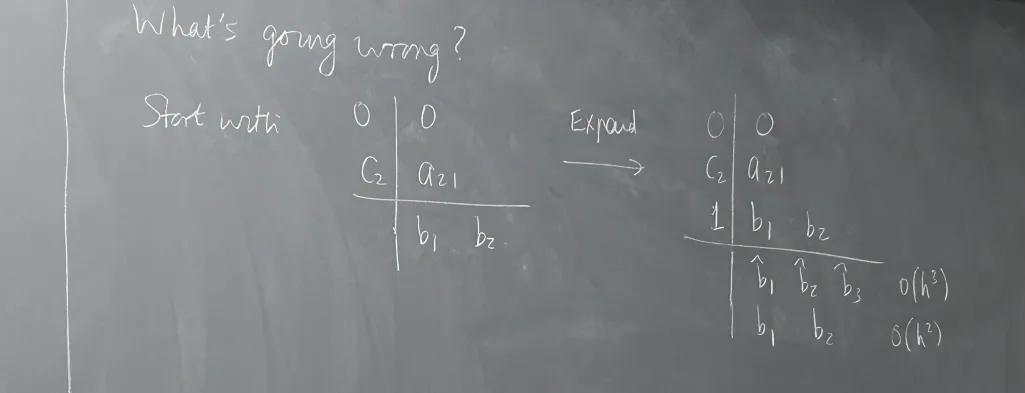 What's going wrong?
Start with
0 | 0
c₂ | a₂₁
b₁ b₂
Expand
→
0 | 0
c₂ | a₂₁
1 | b₁ b₂
b̂₁ b̂₂ b̂₃ O(h³)
b₁ b₂ O(h²)